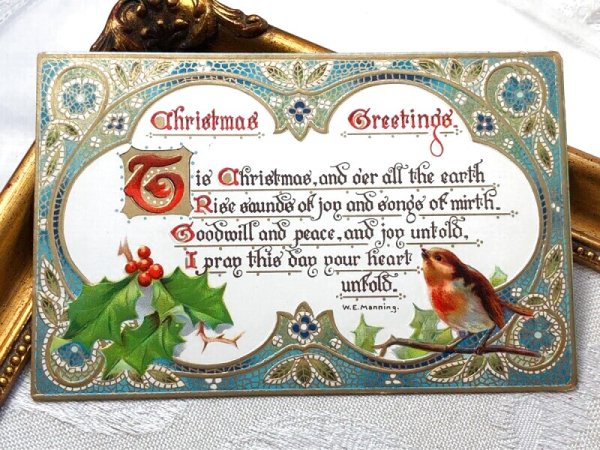 Christmas Greetings.
Tis Christmas, and o'er all the earth
Rise sounds of joy and songs of mirth.
Goodwill and peace, and joy untold,
I pray this day your heart
unfold.
W.E. Manning.